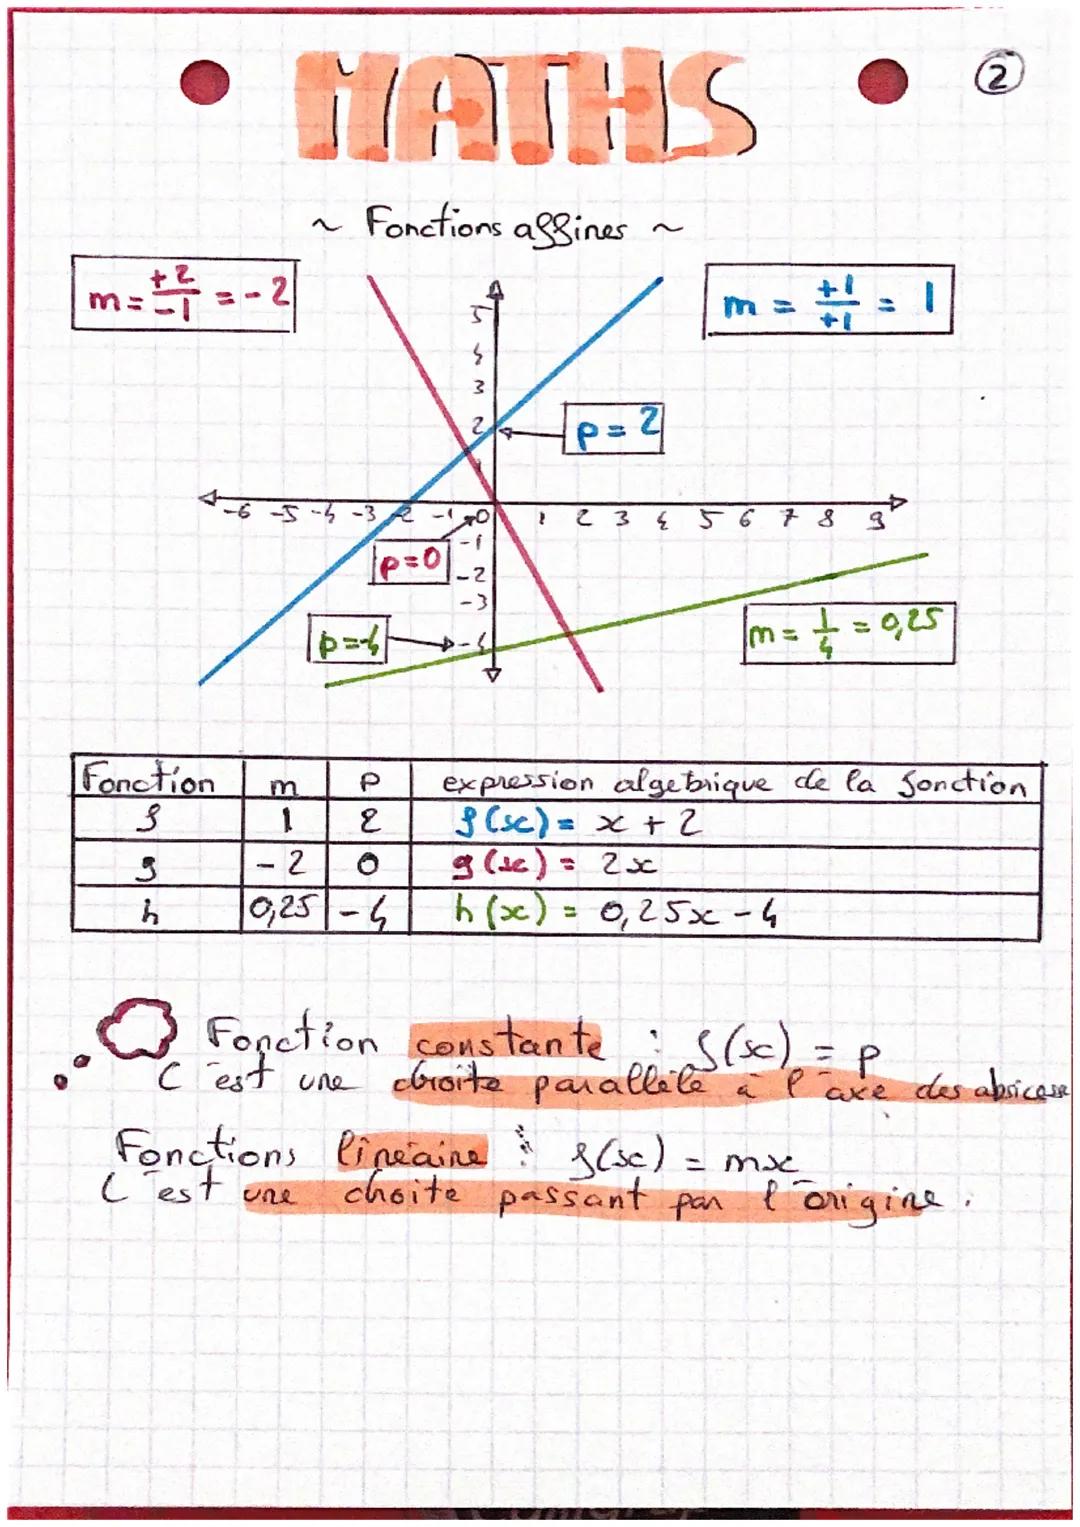 MATHS
2
~ Fonctions affines ~
m = +2/-1 = -2
m = +1/+1 = 1
5
4
3
2
1
p = 2
-6 -5 -4 -3 -2 -1 0 1 2 3 4 5 6 7 8 9
p = 0
-1
-2
-3
-4
p = -4
m = 1/4 = 0,25
Fonction m p expression algebrique de la fonction
f 1 2 f(x) = x + 2
g -2 0 g(x) = 2x
h 0,25 -4 h(x) = 0,25x - 4
Fonction constante : f(x) = p
C'est une droite parallèle à l'axe des absicesse
Fonctions linéaire : f(x) = mx
C'est une droite passant par l'origine.